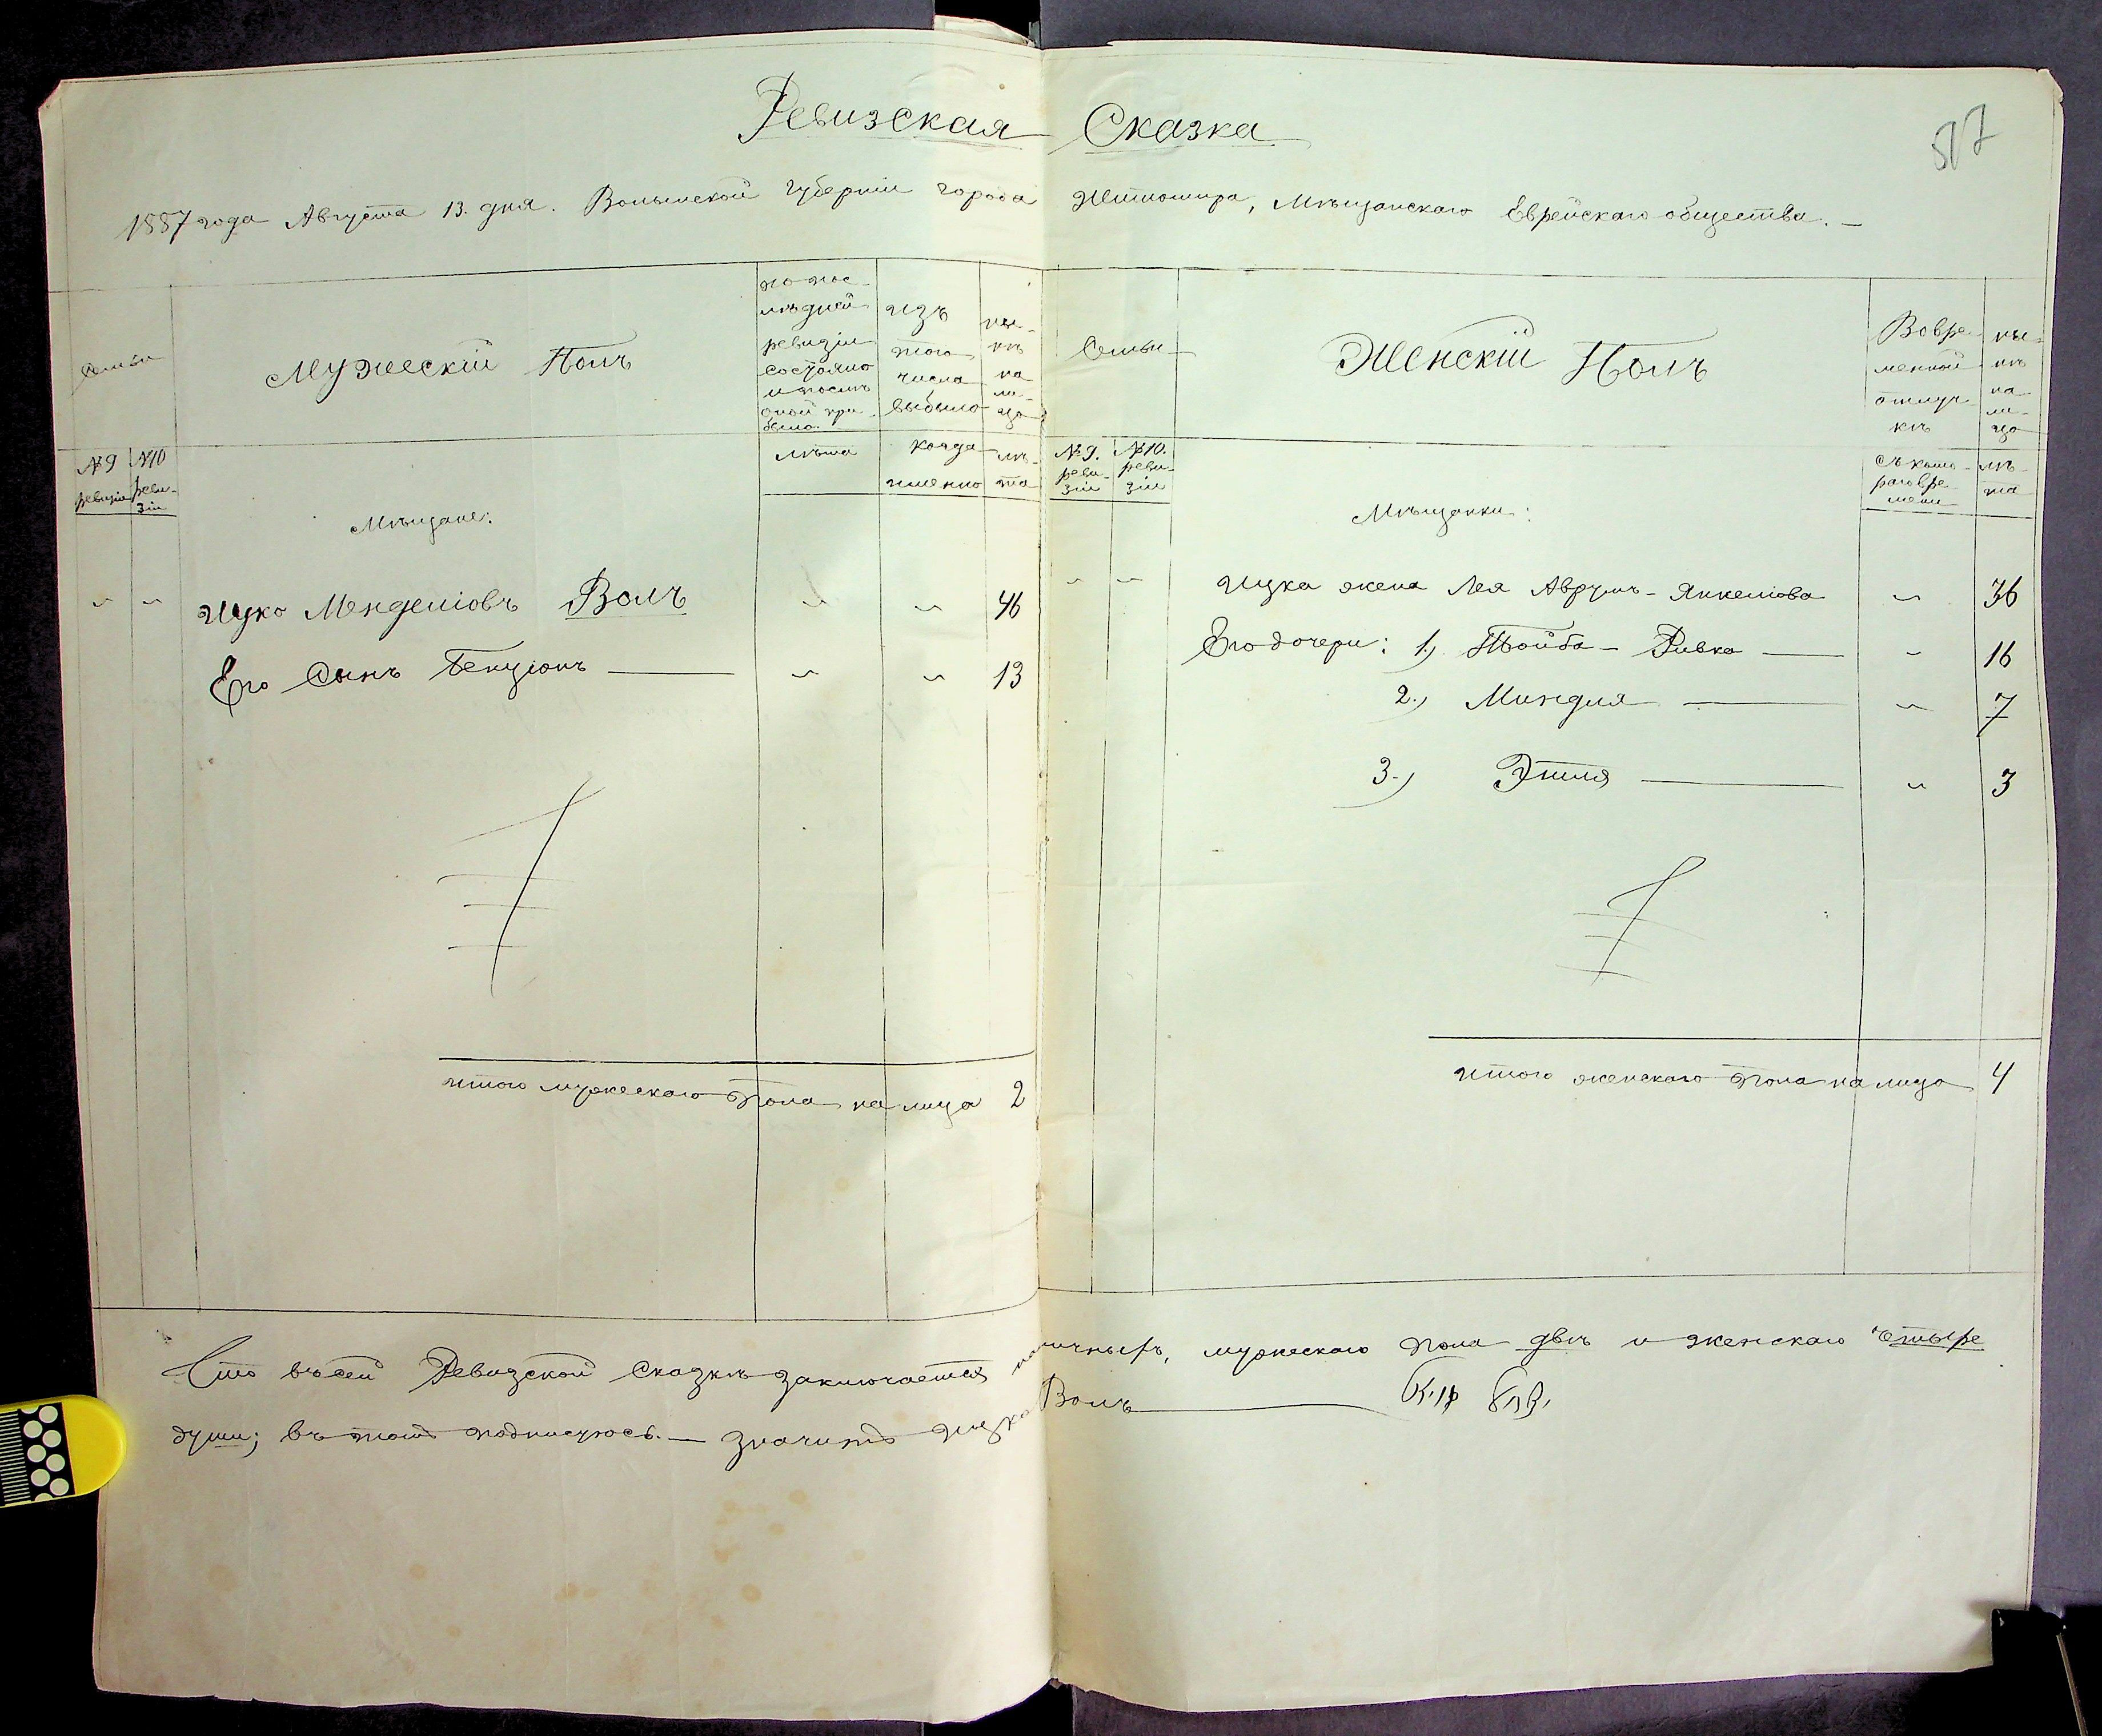 Ревизская Сказка
517
1887 года Августа 13. дня. Волынской Губернiи города Житомира, Мѣщанскаго Еврейскаго общества. —
Семьи
Мужескiй Полъ
по пос-
лѣдней
ревизiи
состояло
и послѣ
оной при-
было.
изъ
того
числа
выбыло
ны-
нѣ
на
ли-
цо
Семьи
Женскiй Полъ
Вовре-
менной
отлуч-
кѣ
ны-
нѣ
на
ли-
цо
№ 9 ревизiи
№ 10 реви-
зiи
Мѣщане:
лѣта
когда
именно
лѣ-
та
№ 9. реви-
зiи
№ 10. реви-
зiи
Мѣщанки:
съ кото-
раго вре-
мени
лѣ-
та
" " Ицко Менделiовъ Волъ " " 46
Его Сынъ Бенцiонъ — " " 13
" " Ицка жена Лея Аврумъ-Янкелiова " 36
Его дочери: 1.) Тойба-Ривка — " 16
2.) Миндля — " 7
3.) Этля — " 3
Итого мужескаго пола на лицо 2
Итого женскаго пола на лицо 4
Что въ сей Ревизской Сказкѣ заключается наличныхъ, мужескаго пола двѣ и женскаго четыре
души; въ томъ подписуюсь. — значитъ Ицко Волъ —